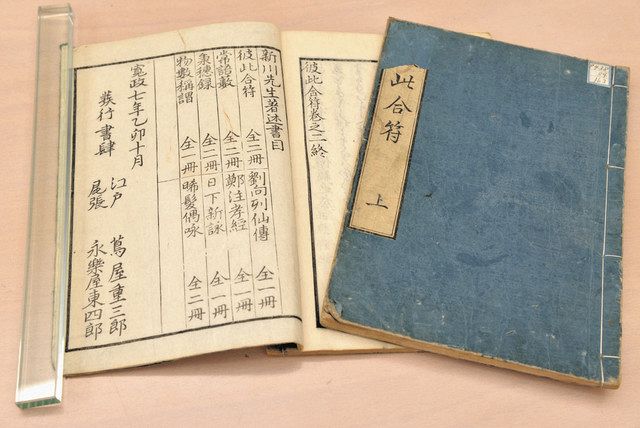 此合符 上
彼此合符巻之二終
新川先生著述書目
彼此合符 全二冊 劉向列仙傳 全一冊
常語藪 全二冊 鄭注孝經 全一冊
秉穂録 全二冊 日下新詠 全一冊
物數稱謂 全一冊 晞髮偶咏 全二冊
寛政七年乙卯十月
發行書肆
江戸 蔦屋重三郎
尾張 永樂屋東四郎